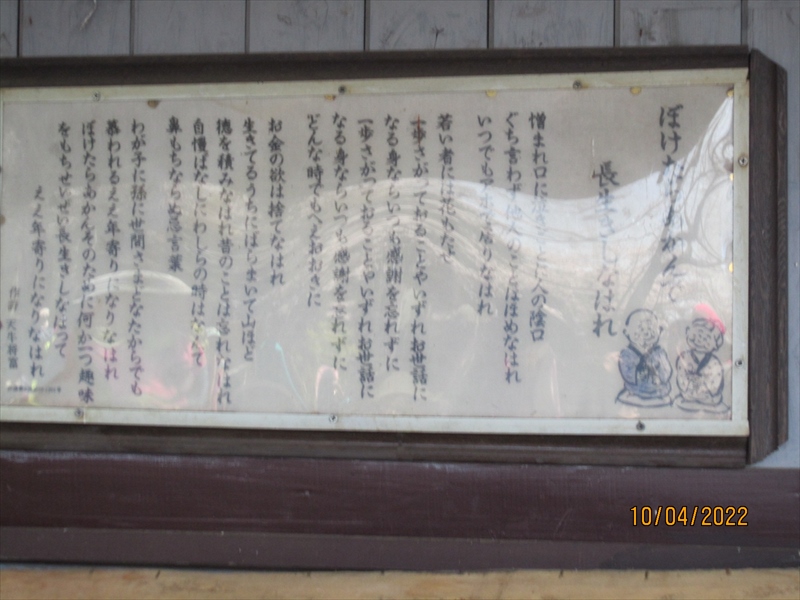 ぼけたらあかんで
長生きしなはれ
憎まれ口に 人の陰口
ぐち言わず他人のことはほめなはれ
いつでもアホで居りなはれ
若い者には花もたせ
一歩さがっておることやいずれお世話に
なる身ならいつも感謝を忘れずに
一歩さがっておることやいずれお世話に
なる身ならいつも感謝を忘れずに
どんな時でもへえおおきに
お金の欲は捨てなはれ
生きてるうちにばらまいて山ほど
徳を積みなはれ昔のことは忘れなはれ
自慢ばなしにわしらの時は
鼻もちならぬ忌言葉
わが子に孫に世間さまどなたからでも
慕われるええ年寄りになりなはれ
ぼけたらあかんそのために何か一つ趣味
をもちせいぜい長生きしなはって
ええ年寄りになりなはれ
作詞 天牛将富
10/04/2022